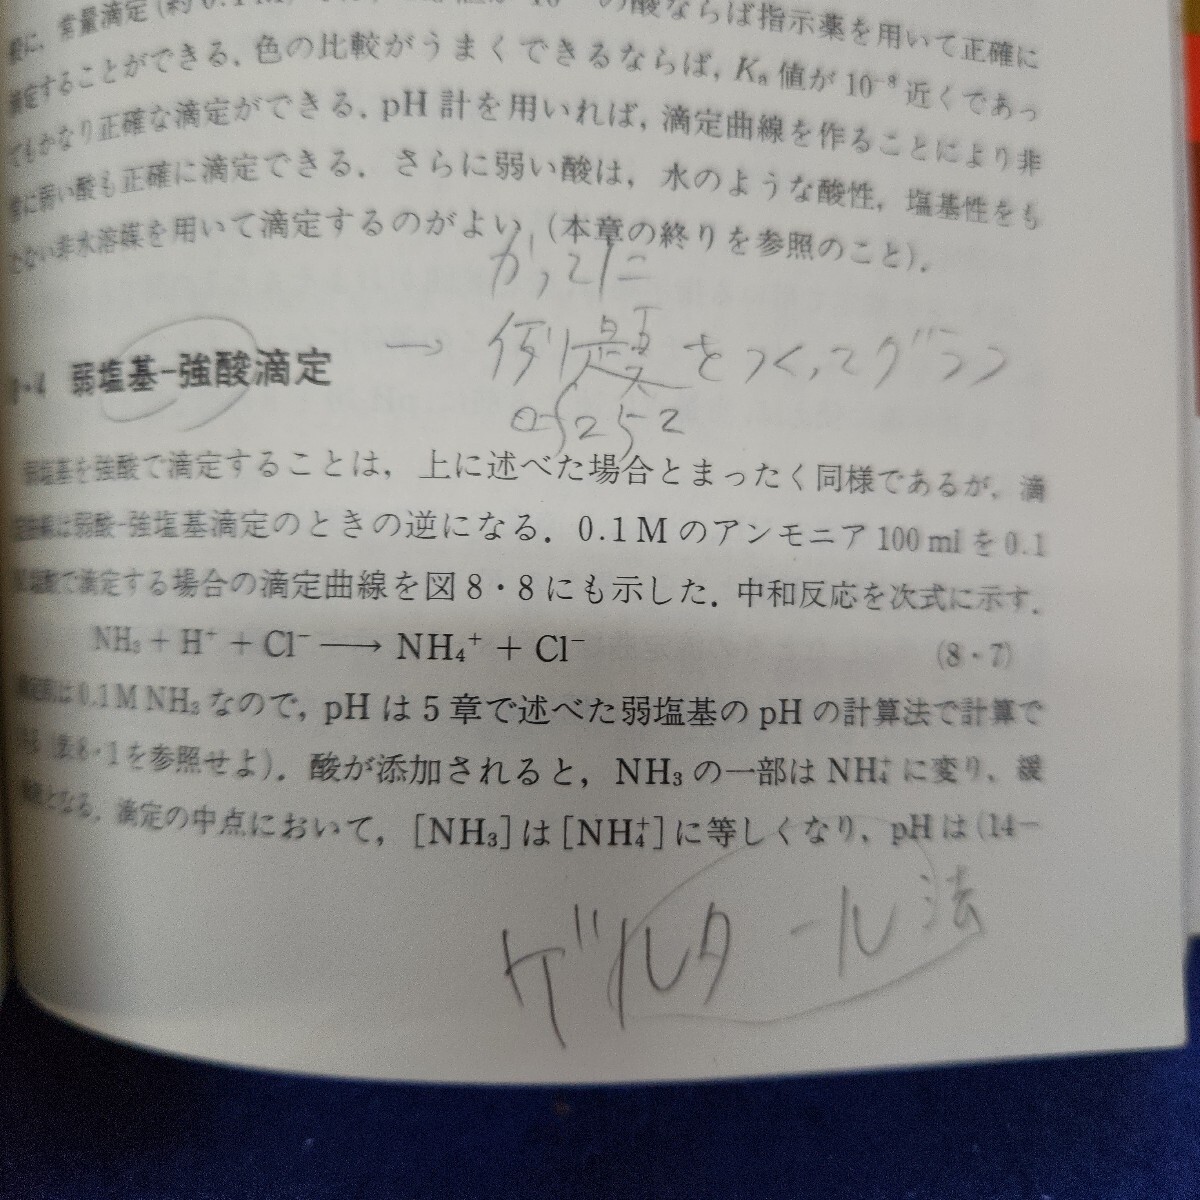 に，常量滴定(約0.1M) の酸ならば指示薬を用いて正確に
滴定することができる．色の比較がうまくできるならば，Ka 値が 10⁻⁸ 近くであっ
てもかなり正確な滴定ができる．pH 計を用いれば，滴定曲線を作ることにより非
常に弱い酸も正確に滴定できる．さらに弱い酸は，水のような酸性，塩基性をも
たない非水溶媒を用いて滴定するのがよい（本章の終りを参照のこと）．
かってに
弱塩基-強酸滴定 → 例題をつくってグラフ
弱塩基を強酸で滴定することは，上に述べた場合とまったく同様であるが，滴
定曲線は弱酸-強塩基滴定のときの逆になる．0.1 M のアンモニア 100 ml を 0.1
M 塩酸で滴定する場合の滴定曲線を図 8・8 にも示した．中和反応を次式に示す．
NH₃ + H⁺ + Cl⁻ ⟶ NH₄⁺ + Cl⁻ (8・7)
滴定前は 0.1 M NH₃ なので，pH は 5 章で述べた弱塩基の pH の計算法で計算で
きる（表 8・1 を参照せよ）．酸が添加されると，NH₃ の一部は NH₄⁺ に変り，緩
衝液となる．滴定の中点において，[NH₃] は [NH₄⁺] に等しくなり，pH は (14－
ゲルダール法